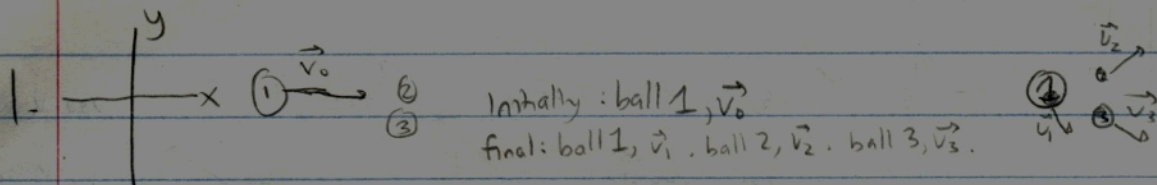 y
1. x ① v₀→ ② ③
Initially : ball 1, v₀→
final: ball 1, v₁→ . ball 2, v₂→ . ball 3, v₃→.
① v₁→ ② v₂→ ③ v₃→